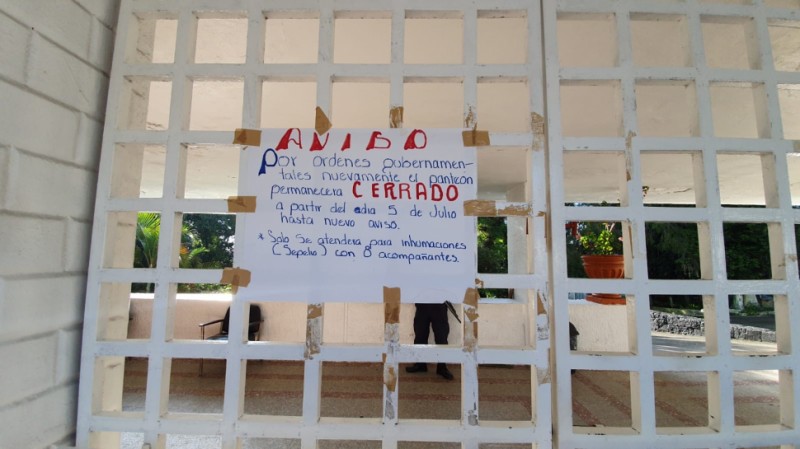 AVISO
Por ordenes gubernamen-
tales nuevamente el panteon
permanecera CERRADO
a partir del dia 5 de Julio
hasta nuevo aviso.
* Solo se atendera para inhumaciones
(Sepelio) con 8 acompañantes.